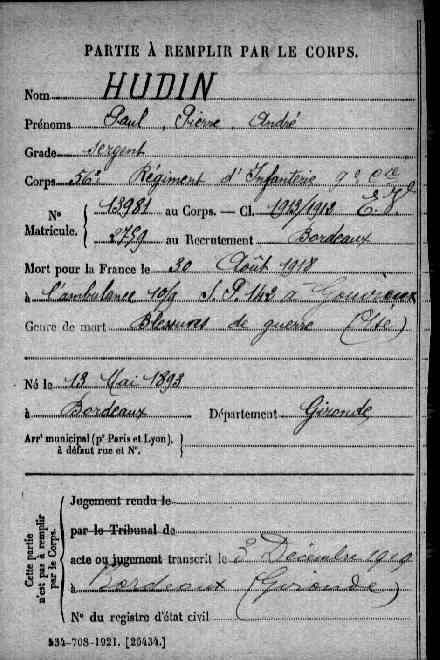 PARTIE À REMPLIR PAR LE CORPS.
Nom HUDIN
Prénoms Paul, Pierre, André
Grade Sergent
Corps 56e Régiment d'Infanterie 9e Cie
N° Matricule. { 13981 au Corps. — Cl. 1913/1913 E.V.
2759 au Recrutement Bordeaux
Mort pour la France le 30 Août 1918
à l'ambulance 10/9 S.P. 142 à Gouvieux
Genre de mort Blessures de guerre (Oise)
Né le 13 Mai 1893
à Bordeaux Département Gironde
Arrt municipal (pr Paris et Lyon), à défaut rue et N°. }
Cette partie n'est pas à remplir par le Corps.
Jugement rendu le
par le Tribunal de
acte ou jugement transcrit le 3 Décembre 1919
à Bordeaux (Gironde)
N° du registre d'état civil
534-708-1921. [26434.]